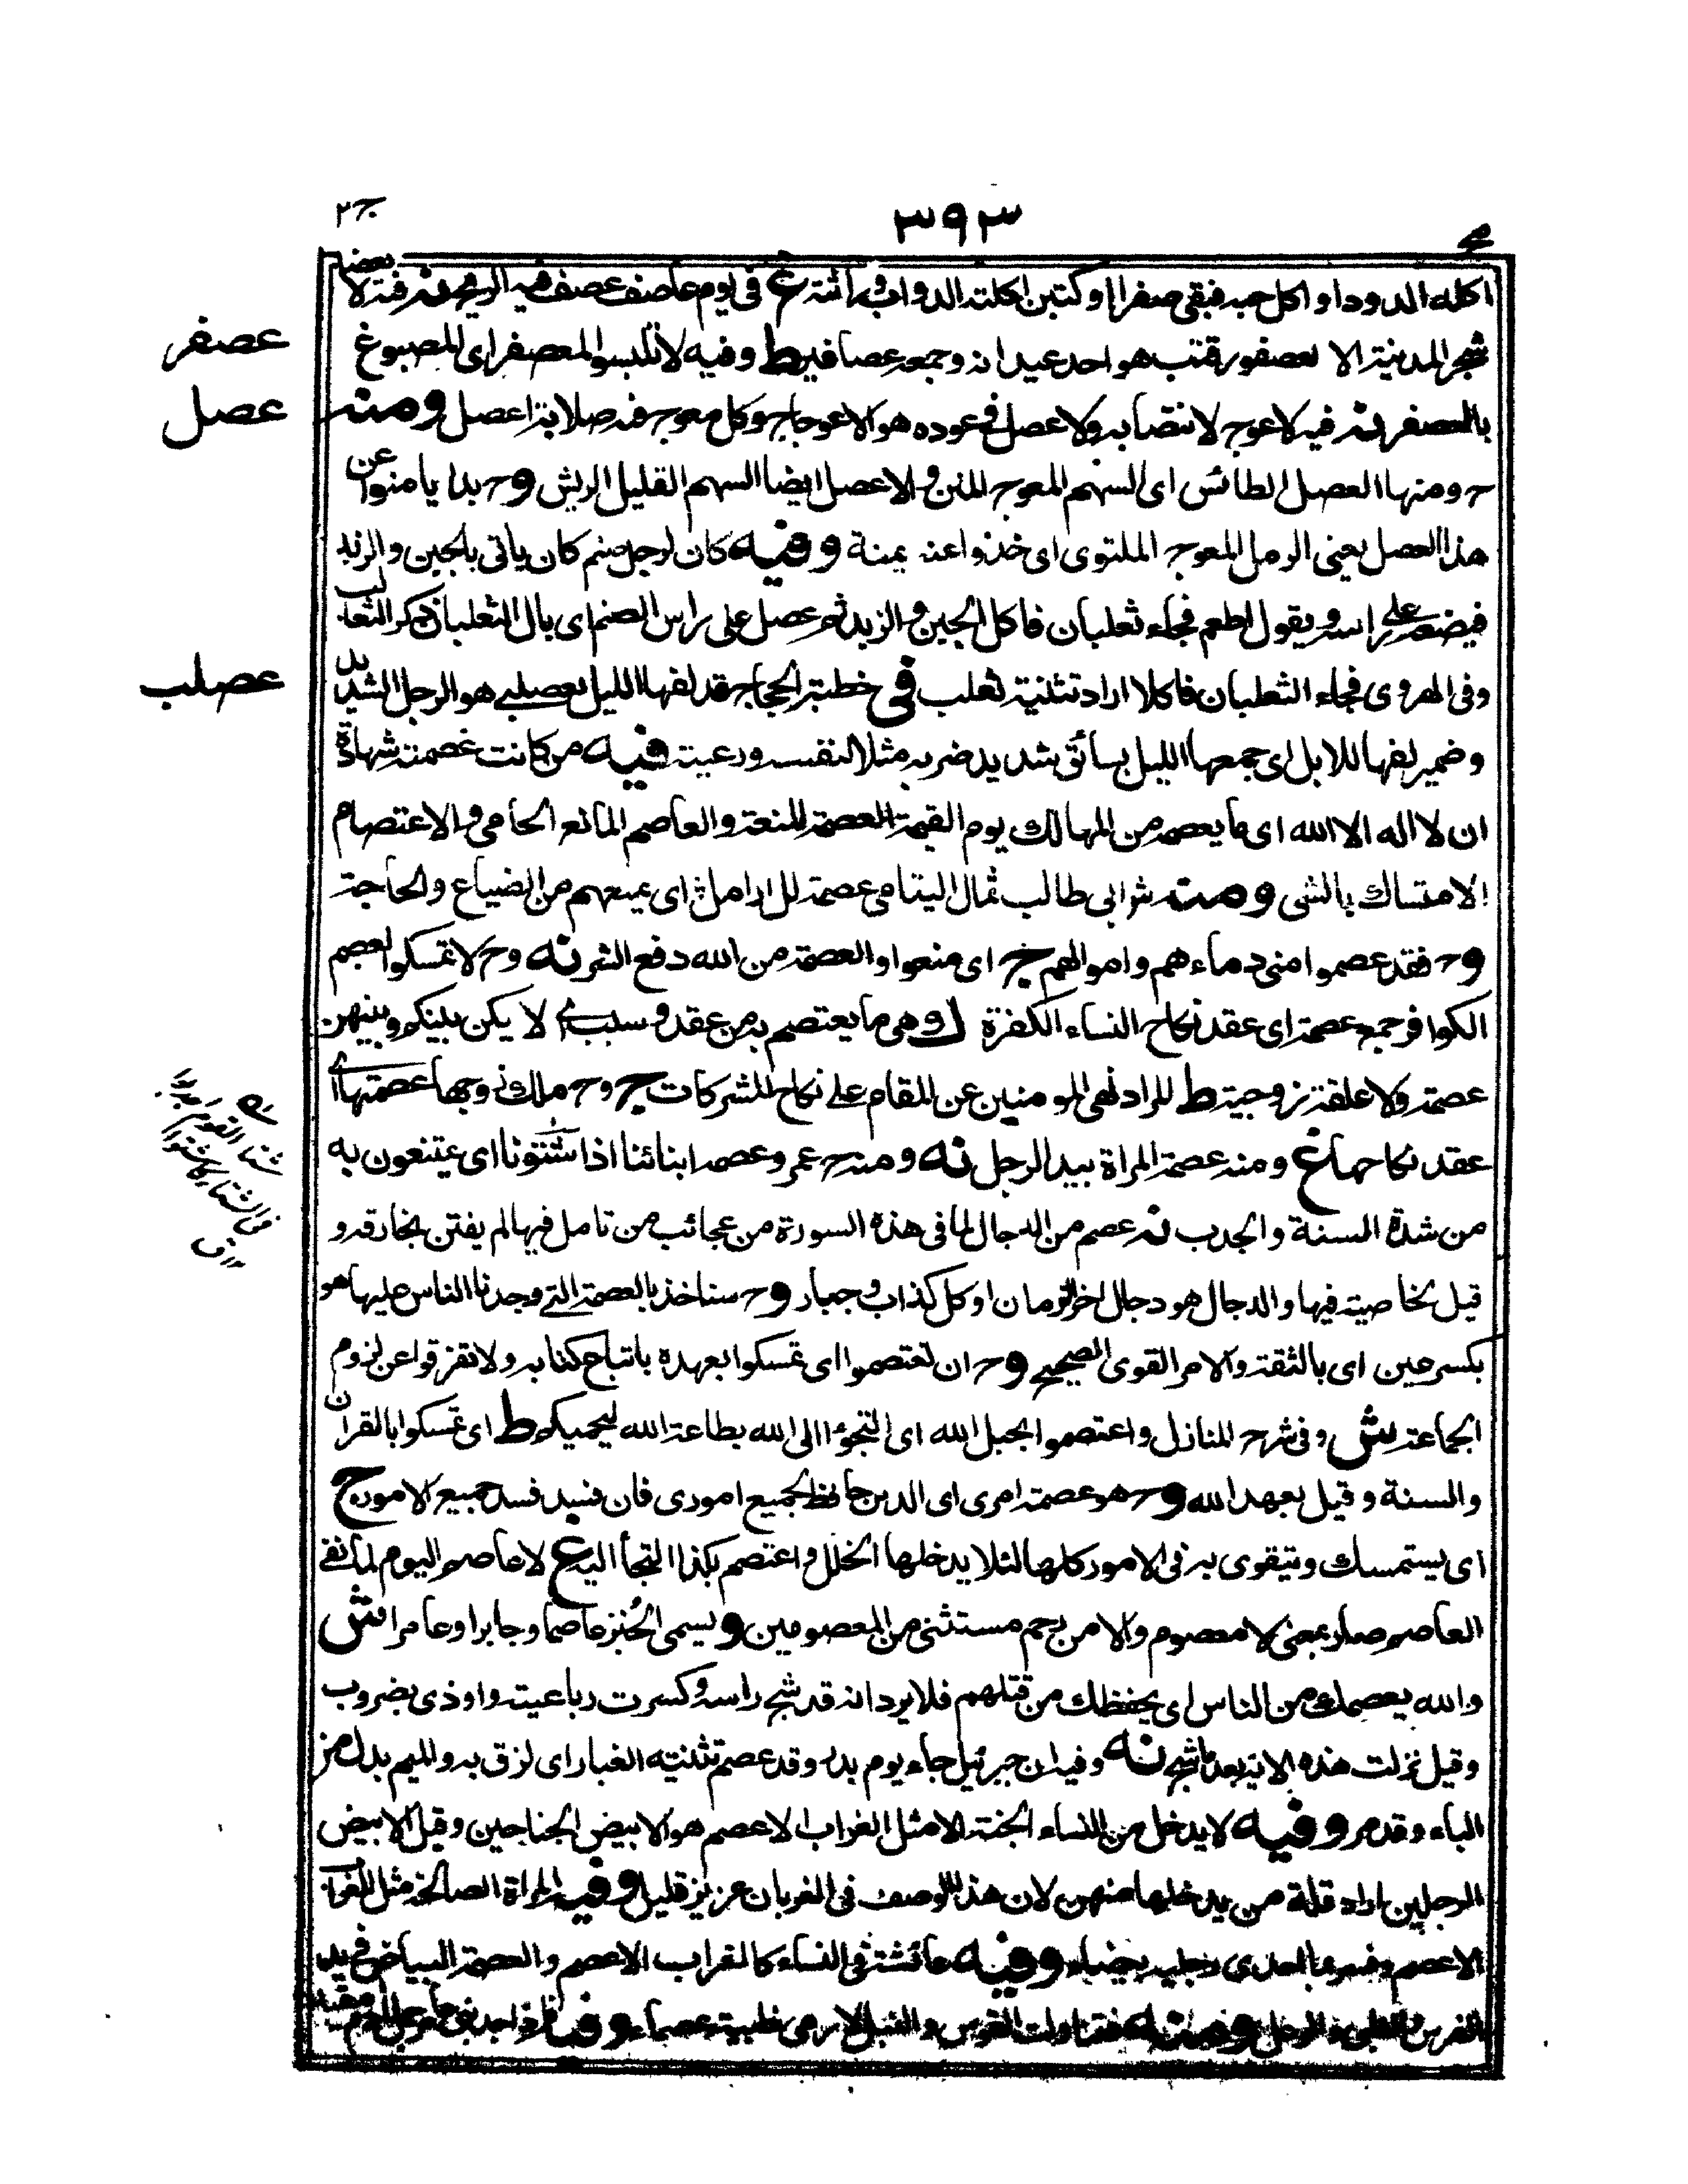 ٣٩٣
ج ٢
اكله الدود او اكل حبه فبقي صفرا او كتبن اكلته الدواب وراثته غ في يوم عاصف عصف فيه الريح نه فيه لا يعضد
شجر المدينة الا لعصفور قتب هو احد عيدانه وجمعه عصافير ط وفيه لا تلبسوا المعصفر اى المصبوغ
عصفر
بالعصفر نه فيه لا عوج لانتصابه ولا عصل في عوده هو الاعوجاج وكل معوج فيه صلابة اعصل ومنه
عصل
ح ومنها العصل الطائش اى السهم المعوج المتن والاعصل ايضا السهم القليل الريش وح بدر يامنوا عن
هذا العصل يعنى الرمل المعوج الملتوى اى خذوا عنه يمنة وفيه كان لرجل صنم كان ياتى بالجبن والزبد
فيضعه على راسه ويقول اطعم فجاء ثعلبان فاكل الجبن والزبد ثم عصل على راس الصنم اى بال الثعلبان ذكر الثعالب
وفى الهروى فجاء الثعلبان فاكلا اراد تثنية ثعلب فى خطبة الحجاج قد لفها الليل بعصلبى هو الرجل الشديد
عصلب
وضمير لفها للابل اى جمعها الليل بسائق شديد ضربه مثلا لنفسه ورعيته فيه من كانت عصمته شهادة
ان لا اله الا الله اى ما يعصمه من المهالك يوم القيمة العصمة المنعة والعاصم المانع الحامى والاعتصام
الامتساك بالشى ومنه شر ابى طالب ثمال اليتامى عصمة للارامل اى يمنعهم من الضياع والحاجة
وح فقد عصموا منى دماءهم واموالهم ج اى منعوا والعصمة من الله دفع الشر نه وح لا تمسكوا بعصم
الكوافر جمع عصمة اى عقد نكاح النساء الكفرة ك وهى ما يعتصم به من عقد وسبب اى لا يكن بينكم وبينهن
عصمة ولا علقة زوجية ط المراد نهى المومنين عن المقام على نكاح المشركات ج وح ملك زوجها عصمتها اى
عقد نكاحها غ ومنه عصمة المراة بيد الرجل نه ومنه ح عمر وعصمه ابنائنا اذا شتونا اى يمتنعون به
من شدة السنة والجدب نه عصم من الدجال لما فى هذه السورة من عجائب من تامل فيها لم يفتتن بخارقه و
قيل لخاصية فيها والدجال هو دجال اخر الزمان او كل كذاب وجبار وح سناخذ بالعصمة التى وجدنا الناس عليها هو
بكسر عين اى بالثقة والامر القوى الصحيح وح ان تعتصموا اى تمسكوا بعهده باتباع كتابه ولا تفرقوا عن لزوم
الجماعة ش وفى شرح المنازل واعتصموا بحبل الله اى التجؤا الى الله بطاعة الله ليحميكم ط اى تمسكوا بالقران
والسنة وقيل بعهد الله وح هو عصمة امرى اى الدين حافظ لجميع امورى فان فسد فسد جميع الامور ج
اى يستمسك ويتقوى به فى الامور كلها لئلا يدخلها الخلل واعتصم بكذا التجأ اليه غ لا عاصم اليوم لما نفى
العاصم صار بمعنى لا معصوم والا من رحم مستثنى من المعصومين ويسمى الخبز عاصما وجابرا وعامرا ش
والله يعصمك من الناس اى يحفظك من قتلهم فلا يرد انه قد شج راسه وكسرت رباعيته واوذى بضروب
وقيل نزلت هذه الاية بعد ما شج نه وفيه ان جبرئيل جاء يوم بدر وقد عصم ثنيته الغبار اى لزق به والميم بدل من
الباء وقد مر وفيه لا يدخل من النساء الجنة الا مثل الغراب الاعصم هو الابيض الجناحين وقيل الابيض
الرجلين اراد قلة من يدخلها منهن لان هذا الوصف فى الغربان عزيز قليل وفيه المراة الصالحة مثل الغراب
الاعصم وفسره بما احدى رجليه بيضاء وفيه عائشة فى النساء كالغراب الاعصم والعصمة البياض فى يد
الفرس والظبى والوعل ومنه فتناولت القوس والنبل لارمى ظبية عصماء